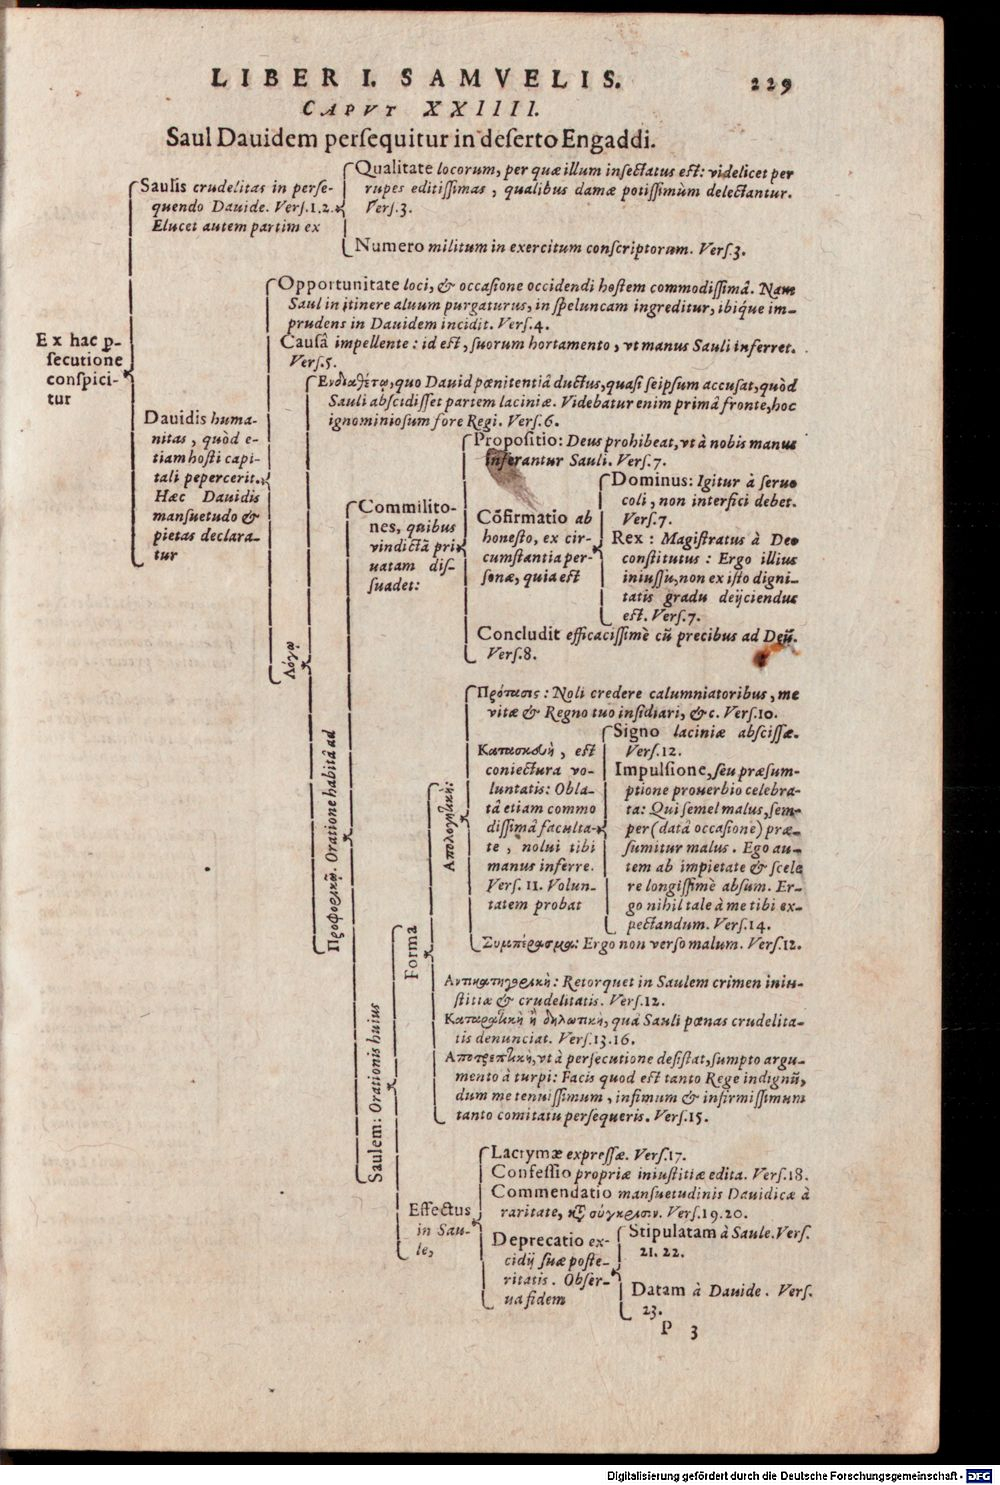 LIBER I. SAMVELIS. 229
CAPVT XXIIII.
Saul Dauidem persequitur in deserto Engaddi.
Ex hac ꝑ-
secutione
conspici-
tur
Saulis crudelitas in perse-
quendo Dauide. Vers.1.2.
Elucet autem partim ex
Qualitate locorum, per quæ illum insectatus est: videlicet per
rupes editissimas, qualibus damæ potissimùm delectantur.
Vers.3.
Numero militum in exercitum conscriptorum. Vers.3.
Dauidis huma-
nitas, quòd e-
tiam hosti capi-
tali pepercerit.
Hæc Dauidis
mansuetudo &
pietas declara-
tur
Opportunitate loci, & occasione occidendi hostem commodissimâ. Nam
Saul in itinere aluum purgaturus, in speluncam ingreditur, ibiq́ue im-
prudens in Dauidem incidit. Vers.4.
Causâ impellente: id est, suorum hortamento, vt manus Sauli inferret.
Vers.5.
Λόγῳ
Ενδιαθέτῳ, quo Dauid pœnitentiâ ductus, quasi seipsum accusat, quòd
Sauli abscidisset partem laciniæ. Videbatur enim primâ fronte, hoc
ignominiosum fore Regi. Vers.6.
Προφορικῷ. Oratione habitâ ad
Commilito-
nes, quibus
vindictã pri-
uatam dis-
suadet:
Propositio: Deus prohibeat, vt à nobis manus
inferantur Sauli. Vers.7.
Cõfirmatio ab
honesto, ex cir-
cumstantia per-
sonæ, quia est
Dominus: Igitur à seruo
coli, non interfici debet.
Vers.7.
Rex: Magistratus à Deo
constitutus: Ergo illius
iniussu, non ex isto digni-
tatis gradu deijciendus
est. Vers.7.
Concludit efficacissimè cũ precibus ad Deũ.
Vers.8.
Saulem: Orationis huius
Forma
Απολογητικὴ:
Πρότασις: Noli credere calumniatoribus, me
vitæ & Regno tuo insidiari, &c. Vers.10.
Κατασκευὴ, est
coniectura vo-
luntatis: Obla-
tâ etiam commo
dissimâ faculta-
te, nolui tibi
manus inferre.
Vers. 11. Volun-
tatem probat
Signo laciniæ abscissæ.
Vers.12.
Impulsione, seu præsum-
ptione prouerbio celebra-
ta: Qui semel malus, sem-
per (datâ occasione) præ-
sumitur malus. Ego au-
tem ab impietate & scele
re longissimè absum. Er-
go nihil tale à me tibi ex-
pectandum. Vers.14.
Συμπέρασμα: Ergo non verso malum. Vers.12.
Αντικατηγορικὴ: Retorquet in Saulem crimen iniu-
stitiæ & crudelitatis. Vers.12.
Καταρατικὴ ἢ δηλωτικὴ, quâ Sauli pœnas crudelita-
tis denunciat. Vers.13.16.
Αποτρεπτικὴ, vt à persecutione desistat, sumpto argu-
mento à turpi: Facis quod est tanto Rege indignũ,
dum me tenuissimum, infimum & infirmissimum
tanto comitatu persequeris. Vers.15.
Effectus
in Sau-
le,
Lacrymæ expressæ. Vers.17.
Confessio propriæ iniustitiæ edita. Vers.18.
Commendatio mansuetudinis Dauidicæ à
raritate, κατὰ σύγκρισιν. Vers.19.20.
Deprecatio ex-
cidij suæ poste-
ritatis. Obser-
ua fidem
Stipulatam à Saule. Vers.
21. 22.
Datam à Dauide. Vers.
23.
P 3
Digitalisierung gefördert durch die Deutsche Forschungsgemeinschaft - DFG